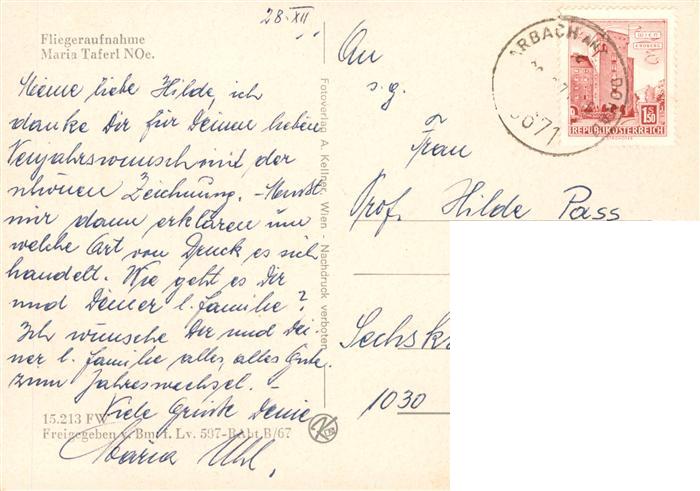 28. XII
Fliegeraufnahme
Maria Taferl NOe.
Meine liebe Hilde, ich
danke Dir für Deinen lieben
Neujahrswunsch mit der
schönen Zeichnung. – Mußt
mir dann erklären um
welche Art von Druck es sich
handelt. Wie geht es Dir
und Deiner l. Familie?
Ich wünsche Dir und Dei-
ner l. Familie alles, alles Gute
zum Jahreswechsel. –
Viele Grüße Deine
Maria Uhl.
15.213 FW
Freigegeben v. Bm. f. Lv. 507-RAbt.B/67
Fotoverlag A. Kellner, Wien - Nachdruck verboten
An
s. g.
Frau
Prof. Hilde Pass
Sechskr
1030
ARBACH AN
3671
1.50
REPUBLIK ÖSTERREICH